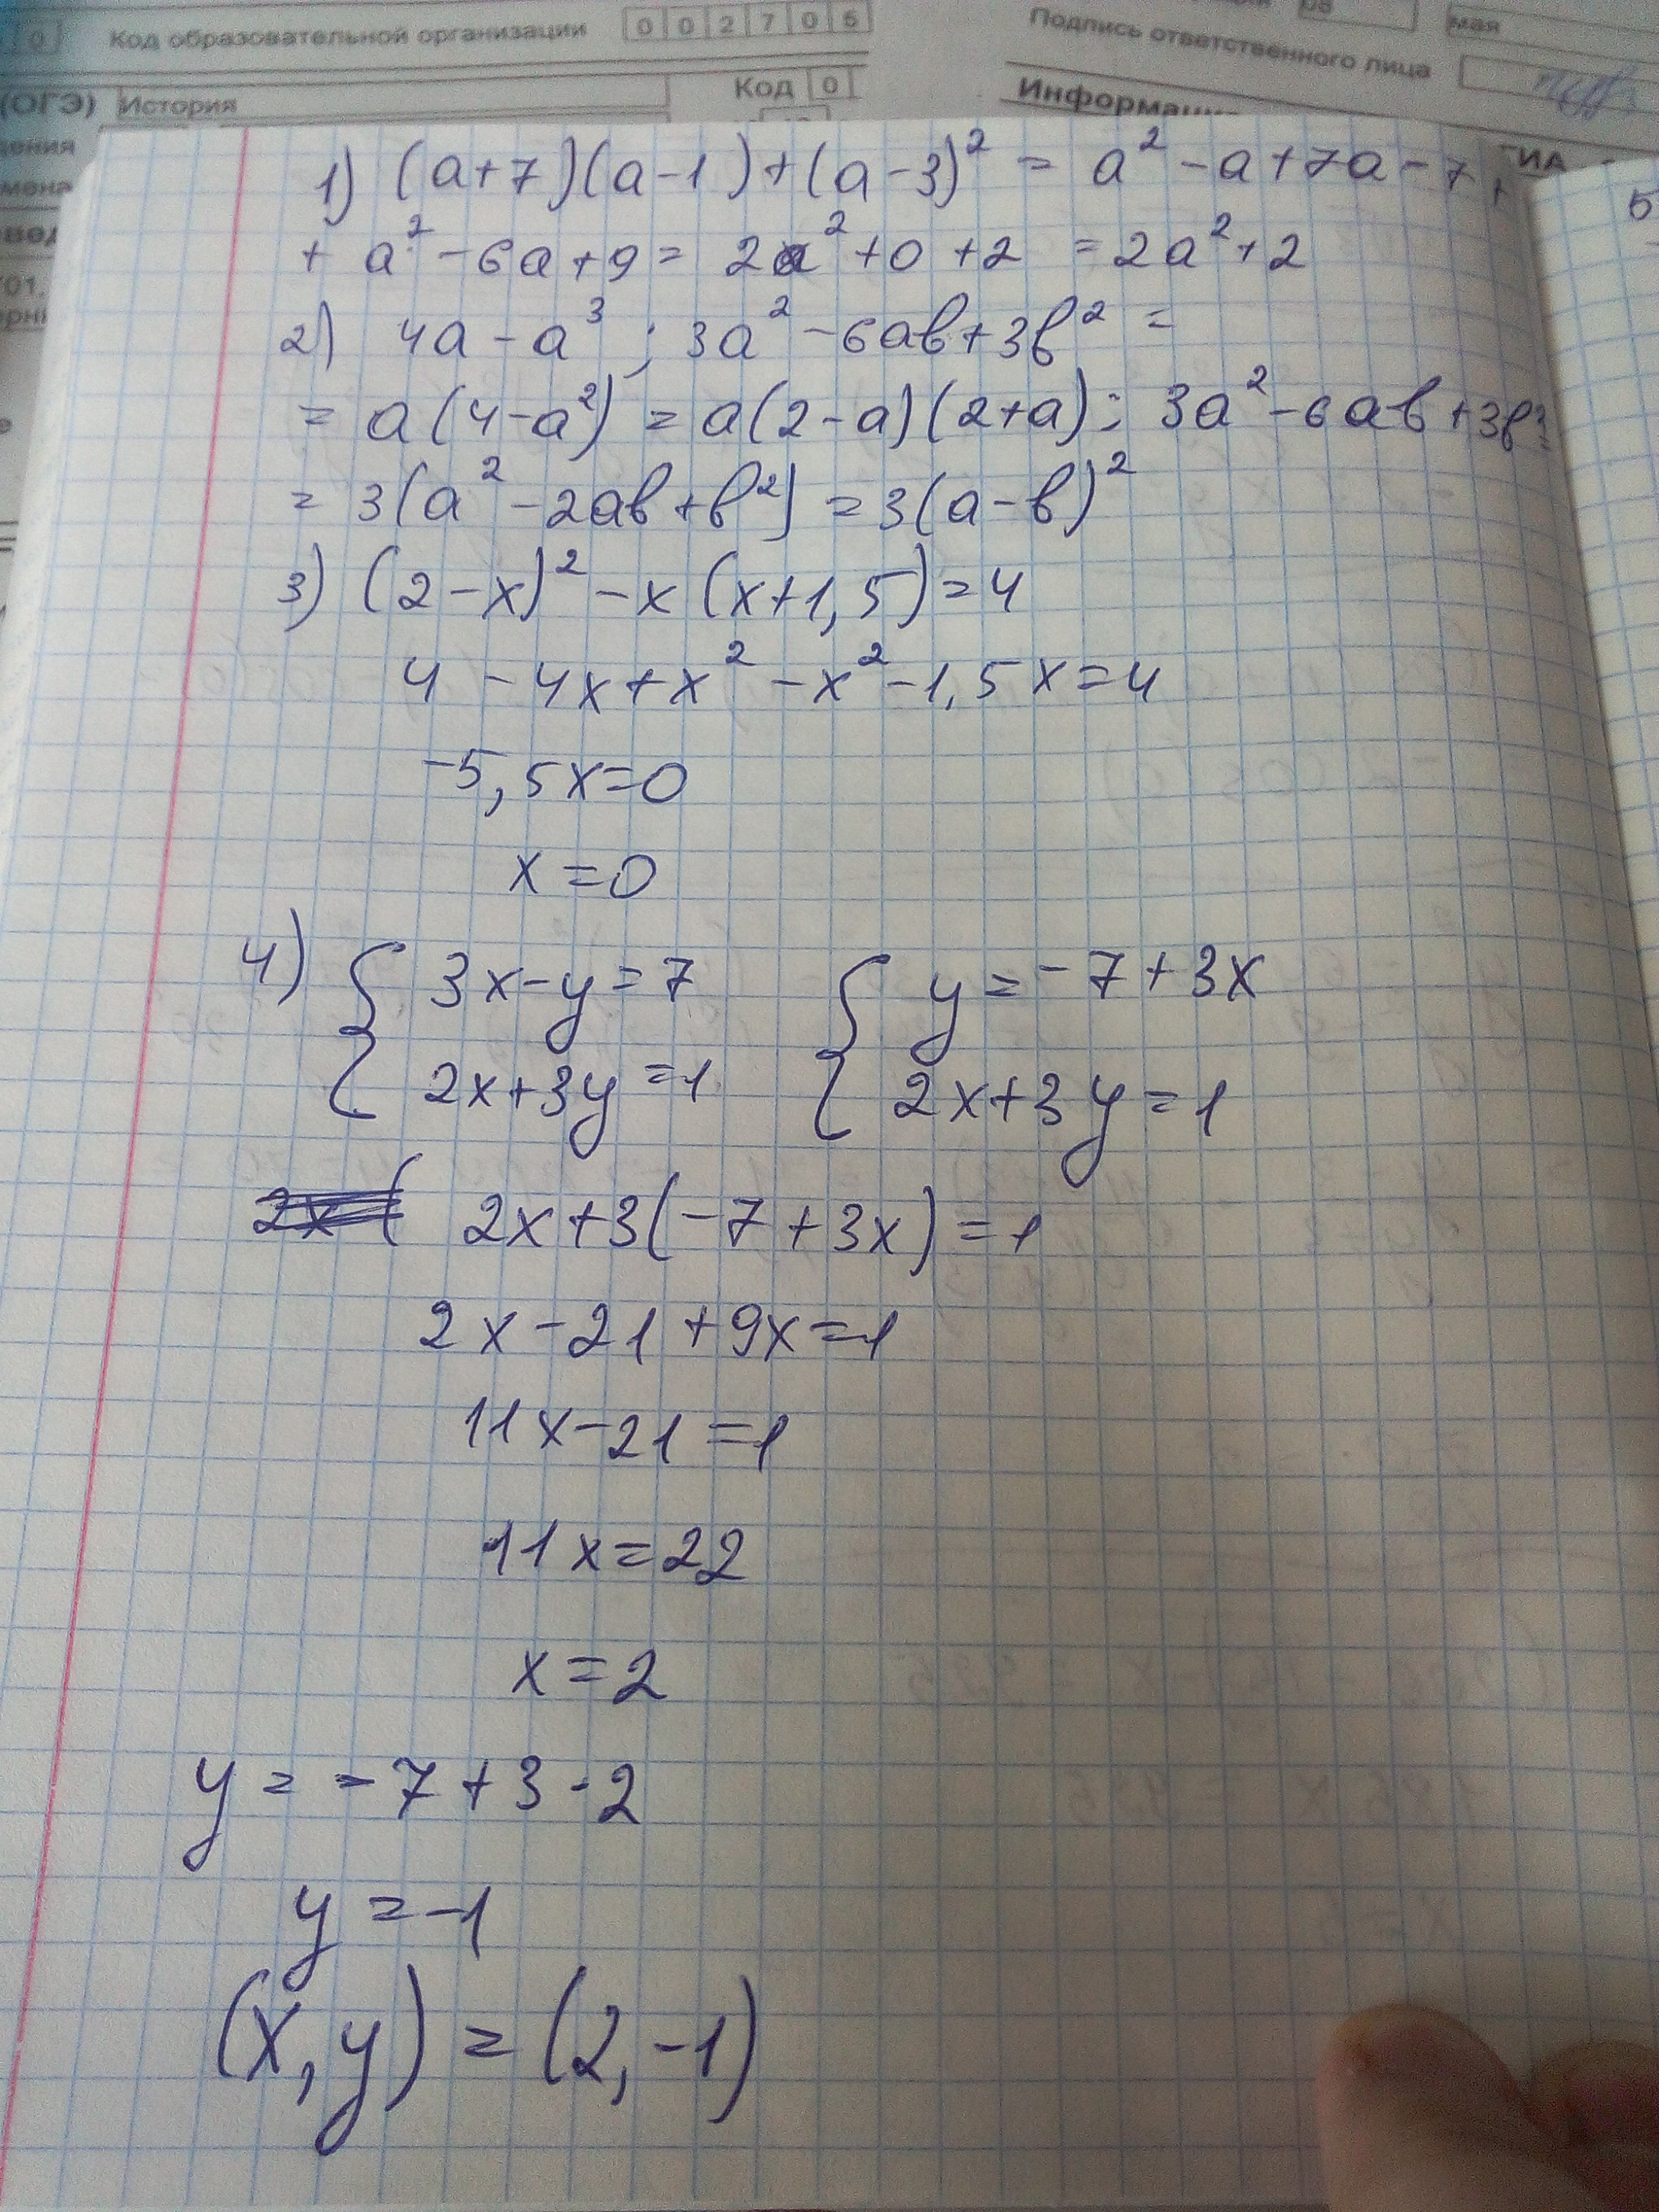 0 Код образовательной организации 0 0 2 7 0 5
08 мая
Подпись ответственного лица
(ОГЭ) История Код 0
1) (a+7)(a-1)+(a-3)² = a² - a+7a-7+
+ a² - 6a+9 = 2a² +0 +2 = 2a²+2
2) 4a - a³ ; 3a² - 6ab+3b² =
= a(4-a²) = a(2-a)(2+a); 3a² - 6ab+3b²=
= 3(a² - 2ab+b²) = 3(a-b)²
3) (2-x)² - x(x+1,5)=4
4 - 4x+x² - x² - 1,5x=4
-5,5x=0
x=0
4) { 3x-y=7 { y=-7+3x
2x+3y=1 2x+3y=1
2x+3(-7+3x)=1
2x-21+9x=1
11x-21=1
11x=22
x=2
y = -7+3·2
y=-1
(x,y) = (2,-1)